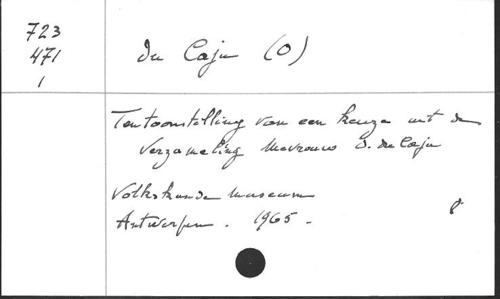 723
471
1
du Caju (O)
Tentoonstelling van een keuze uit de
verzameling Mevrouw O. du Caju
Volkskunde museum
Antwerpen. 1965.
8°